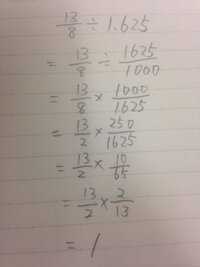 13/8 ÷ 1.625
= 13/8 ÷ 1625/1000
= 13/8 × 1000/1625
= 13/2 × 250/1625
= 13/2 × 10/65
= 13/2 × 2/13
= 1